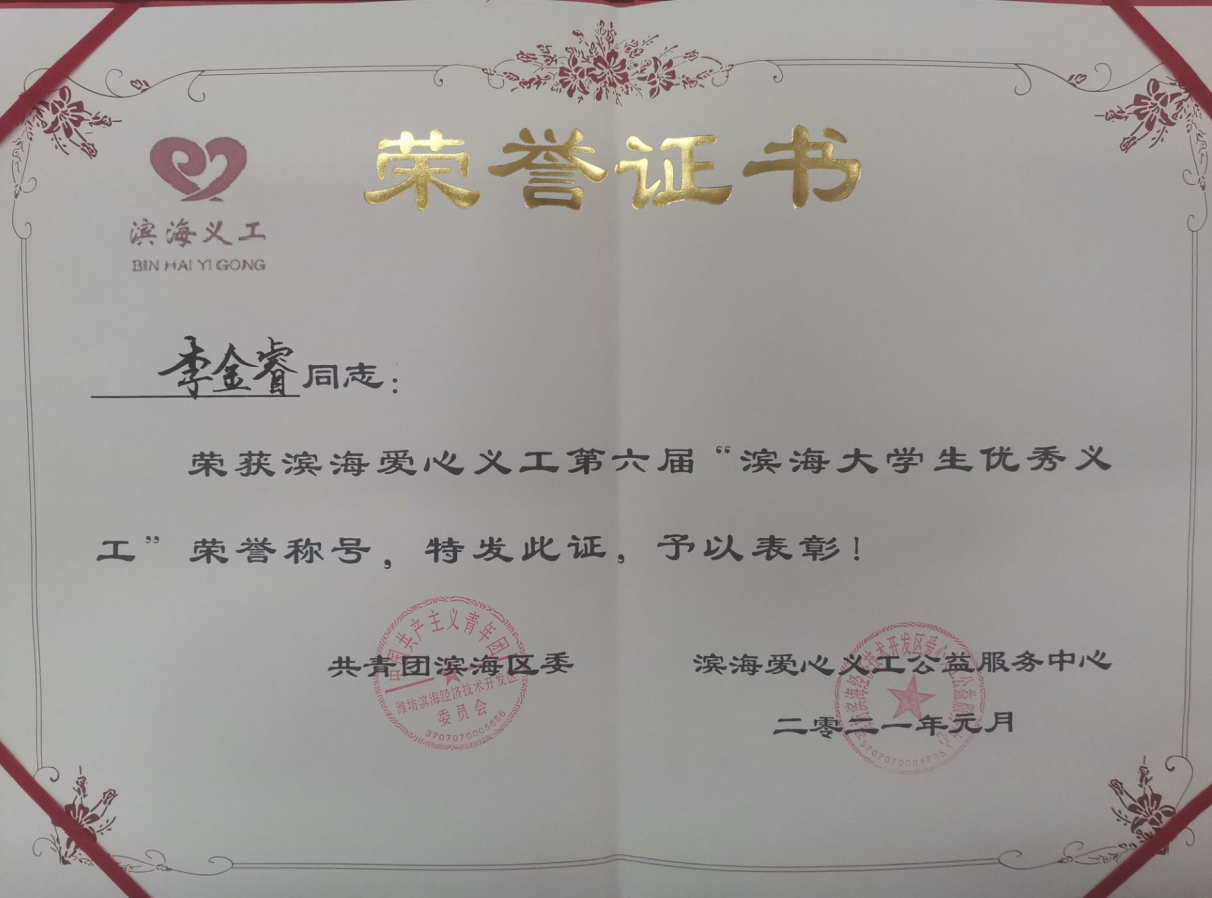 荣誉证书
滨海义工
BIN HAI YI GONG
李金睿同志：
荣获滨海爱心义工第六届“滨海大学生优秀义
工”荣誉称号，特发此证，予以表彰！
共青团滨海区委
滨海爱心义工公益服务中心
二零二一年元月
中国共产主义青年团
潍坊滨海经济技术开发区
委员会
滨海经济技术开发区爱心义工公益服务中心